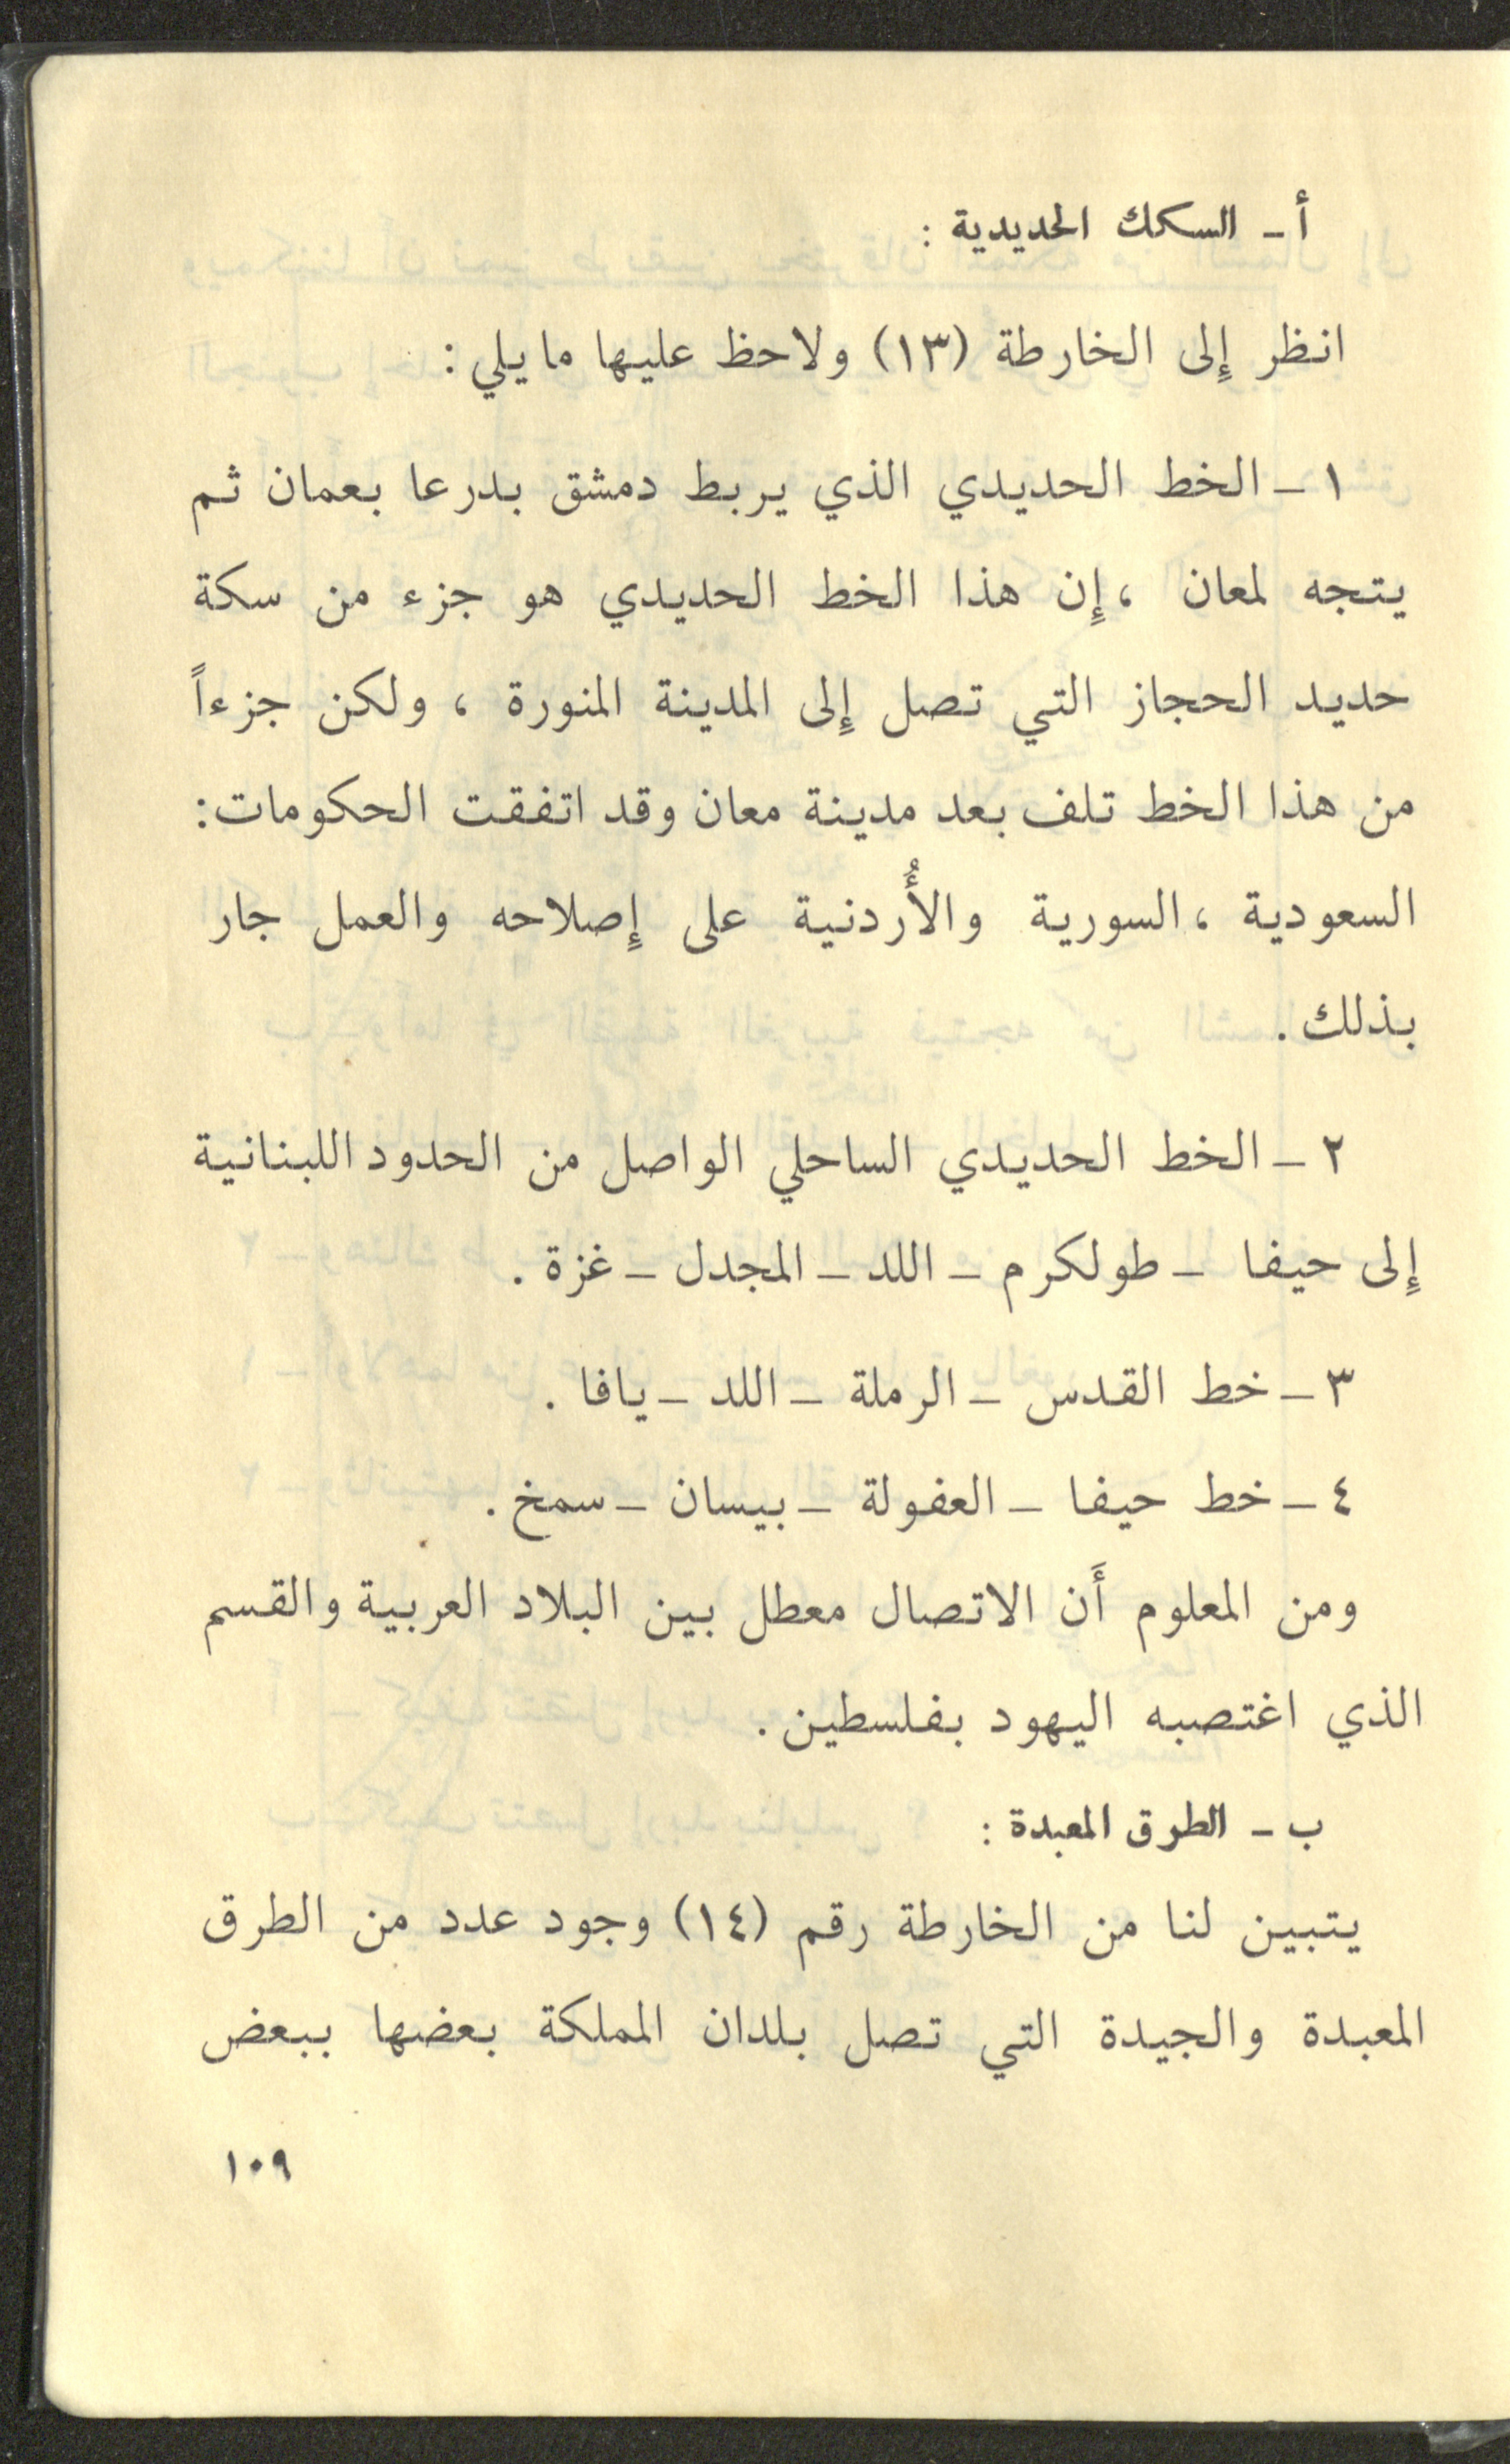 أ ـ السكك الحديدية :
انظر إِلى الخارطة (١٣) ولاحظ عليها ما يلي :
١ ـ الخط الحديدي الذي يربط دمشق بدرعا بعمان ثم
يتجه لمعان ، إِن هذا الخط الحديدي هو جزء من سكة
حديد الحجاز التي تصل إِلى المدينة المنورة ، ولكن جزءاً
من هذا الخط تلف بعد مدينة معان وقد اتفقت الحكومات:
السعودية ، السورية والأُردنية على إِصلاحه والعمل جار
بذلك .
٢ ـ الخط الحديدي الساحلي الواصل من الحدود اللبنانية
إِلى حيفا ـ طولكرم ـ اللد ـ المجدل ـ غزة .
٣ ـ خط القدس ـ الرملة ـ اللد ـ يافا .
٤ ـ خط حيفا ـ العفولة ـ بيسان ـ سمخ .
ومن المعلوم أَن الاتصال معطل بين البلاد العربية والقسم
الذي اغتصبه اليهود بفلسطين .
ب ـ الطرق المعبدة :
يتبين لنا من الخارطة رقم (١٤) وجود عدد من الطرق
المعبدة والجيدة التي تصل بلدان المملكة بعضها ببعض
١٠٩